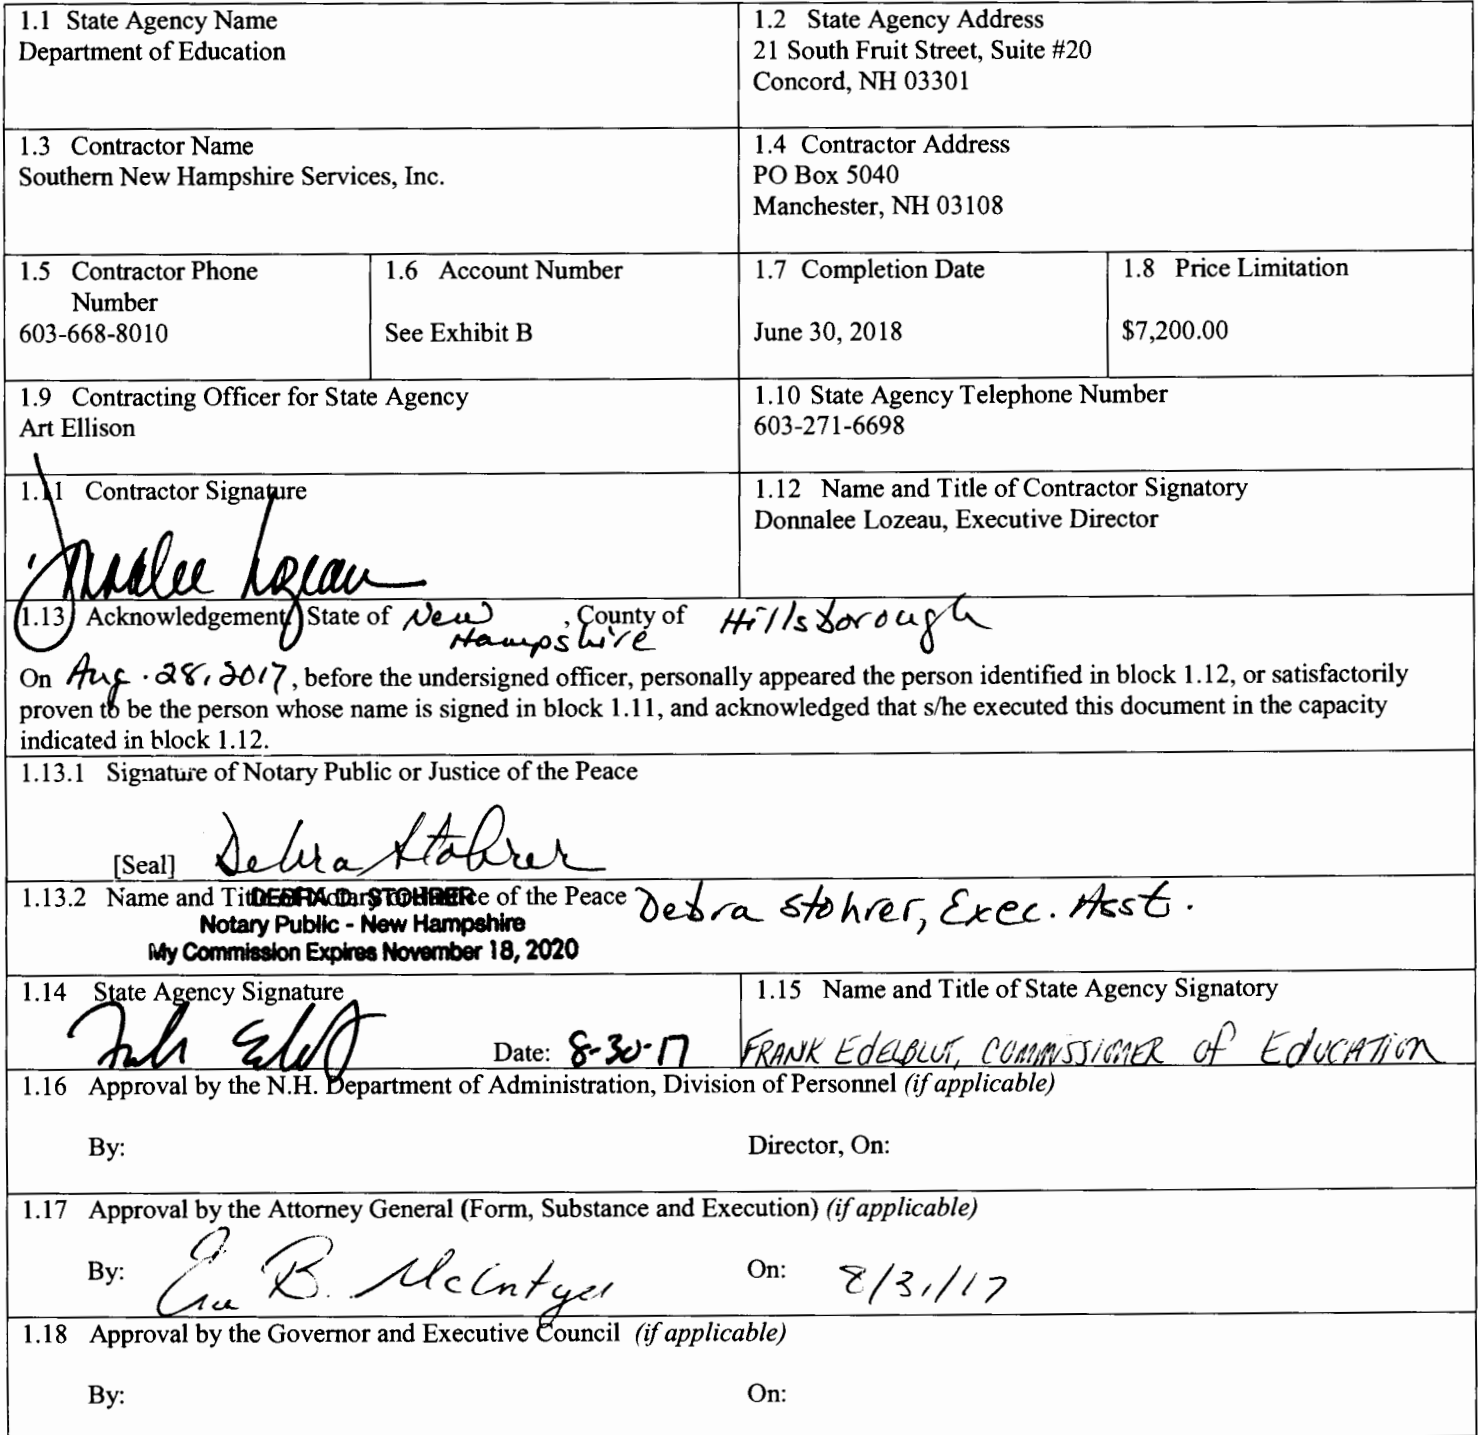 1.1 State Agency Name
Department of Education
1.2 State Agency Address
21 South Fruit Street, Suite #20
Concord, NH 03301
1.3 Contractor Name
Southern New Hampshire Services, Inc.
1.4 Contractor Address
PO Box 5040
Manchester, NH 03108
1.5 Contractor Phone
Number
603-668-8010
1.6 Account Number
See Exhibit B
1.7 Completion Date
June 30, 2018
1.8 Price Limitation
$7,200.00
1.9 Contracting Officer for State Agency
Art Ellison
1.10 State Agency Telephone Number
603-271-6698
1.11 Contractor Signature
Donnalee Lozeau
1.12 Name and Title of Contractor Signatory
Donnalee Lozeau, Executive Director
1.13 Acknowledgement: State of New Hampshire, County of Hillsborough
On Aug. 28, 2017, before the undersigned officer, personally appeared the person identified in block 1.12, or satisfactorily
proven to be the person whose name is signed in block 1.11, and acknowledged that s/he executed this document in the capacity
indicated in block 1.12.
1.13.1 Signature of Notary Public or Justice of the Peace
[Seal] Debra Stohrer
1.13.2 Name and Title of Notary or Justice of the Peace Debra Stohrer, Exec. Asst.
DEBRA D. STOHRER
Notary Public - New Hampshire
My Commission Expires November 18, 2020
1.14 State Agency Signature
Date: 8-30-17
1.15 Name and Title of State Agency Signatory
FRANK EDELBLUT, COMMISSIONER of EDUCATION
1.16 Approval by the N.H. Department of Administration, Division of Personnel (if applicable)
By:
Director, On:
1.17 Approval by the Attorney General (Form, Substance and Execution) (if applicable)
By: B. McIntyre
On: 8/31/17
1.18 Approval by the Governor and Executive Council (if applicable)
By:
On: